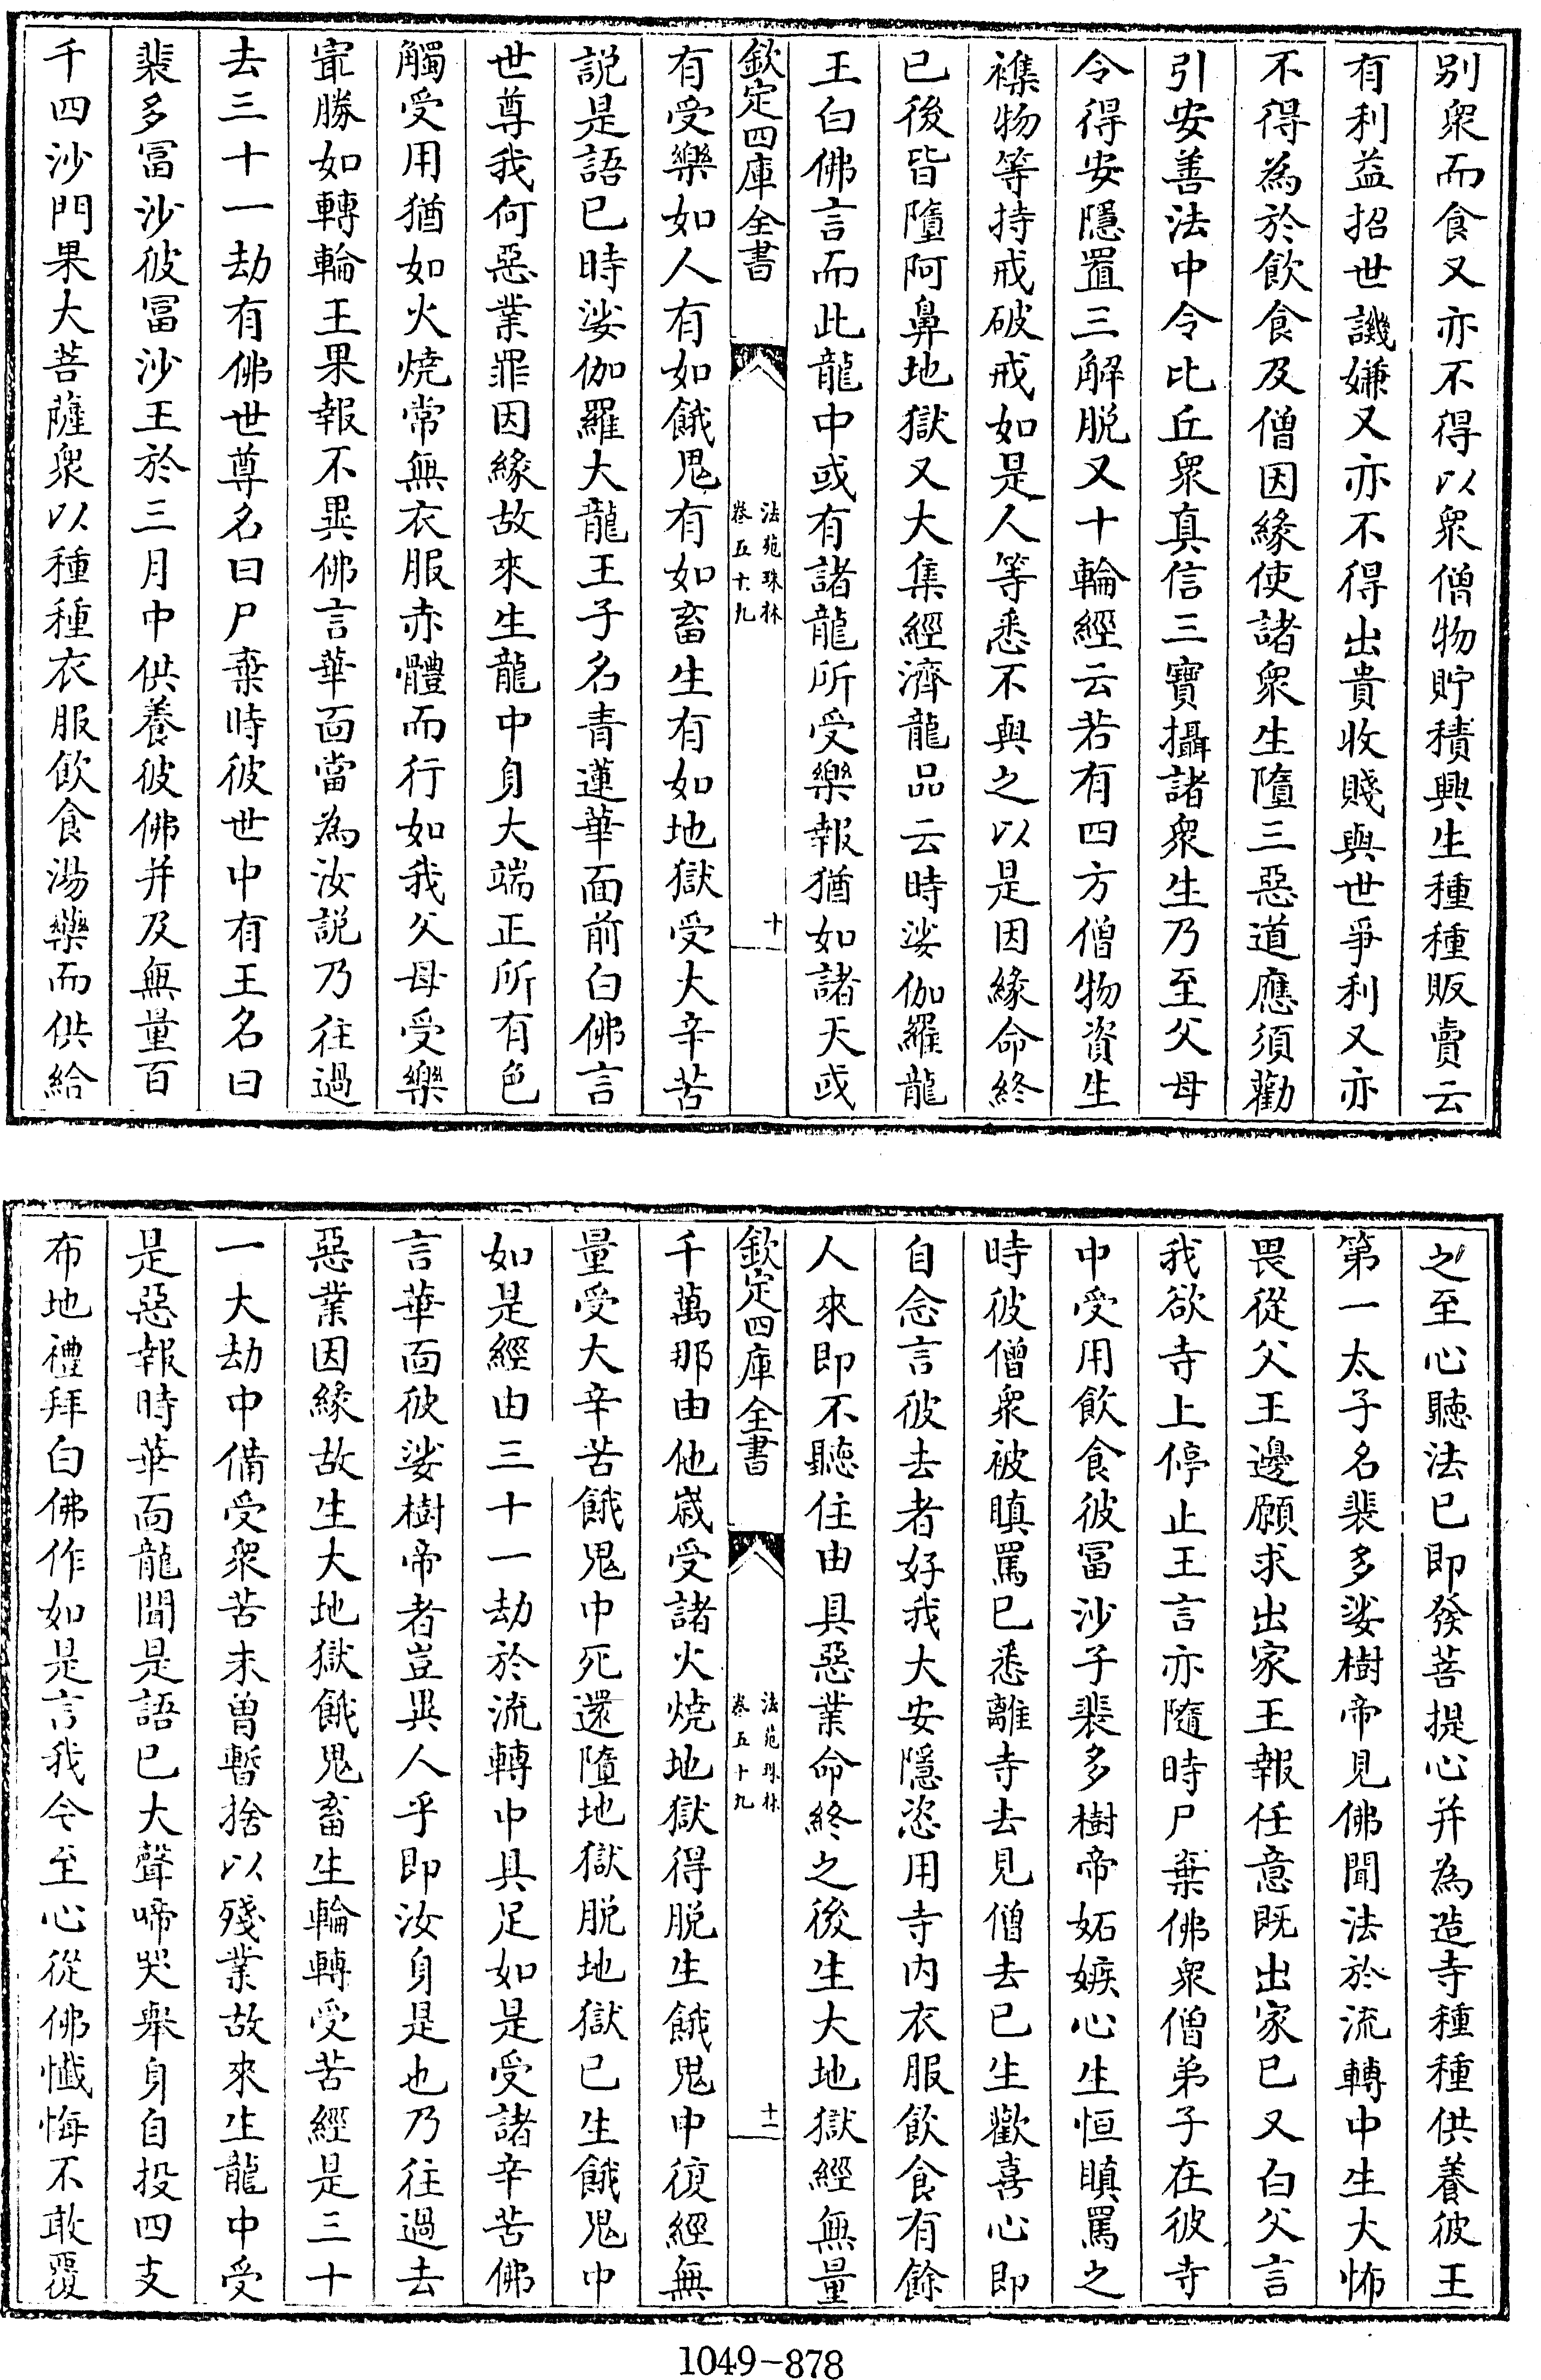 别衆而食又亦不得以衆僧物貯積興生種種販賣云
有利益招世譏嫌又亦不得出貴收賤與世爭利又亦
不得為於飲食及僧因緣使諸衆生墮三惡道應須勸
引安善法中令比丘衆真信三寶攝諸衆生乃至父母
令得安隱置三解脱又十輪經云若有四方僧物資生
襍物等持戒破戒如是人等悉不與之以是因緣命終
已後皆墮阿鼻地獄又大集經濟龍品云時娑伽羅龍
王白佛言而此龍中或有諸龍所受樂報猶如諸天或
欽定四庫全書
法苑珠林
卷五十九
十
有受樂如人有如餓鬼有如畜生有如地獄受大辛苦
説是語已時娑伽羅大龍王子名青蓮華面前白佛言
世尊我何惡業罪因緣故來生龍中身大端正所有色
觸受用猶如火燒常無衣服赤體而行如我父母受樂
寂勝如轉輪王果報不異佛言華面當為汝説乃往過
去三十一劫有佛世尊名曰尸棄時彼世中有王名曰
裴多冨沙彼冨沙王於三月中供養彼佛并及無量百
千四沙門果大菩薩衆以種種衣服飲食湯藥而供給
之至心聽法已即發菩提心并為造寺種種供養彼王
第一太子名裴多娑樹帝見佛聞法於流轉中生大怖
畏從父王邊願求出家王報任意既出家已又白父言
我欲寺上停止王言亦隨時尸棄佛衆僧弟子在彼寺
中受用飲食彼冨沙子裴多樹帝妬嫉心生恒瞋罵之
時彼僧衆被瞋罵已悉離寺去見僧去已生歡喜心即
自念言彼去者好我大安隱恣用寺内衣服飲食有餘
人來即不聽住由具惡業命終之後生大地獄經無量
欽定四庫全書
法苑珠林
卷五十九
十一
千萬那由他歲受諸火燒地獄得脱生餓鬼中復經無
量受大辛苦餓鬼中死還墮地獄脱地獄已生餓鬼中
如是經由三十一劫於流轉中具足如是受諸辛苦佛
言華面彼娑樹帝者豈異人乎即汝身是也乃往過去
惡業因緣故生大地獄餓鬼畜生輪轉受苦經是三十
一大劫中備受衆苦未曽暫捨以殘業故來生龍中受
是惡報時華面龍聞是語已大聲啼哭舉身自投四支
布地禮拜白佛作如是言我今至心從佛懺悔不敢覆
1049-878